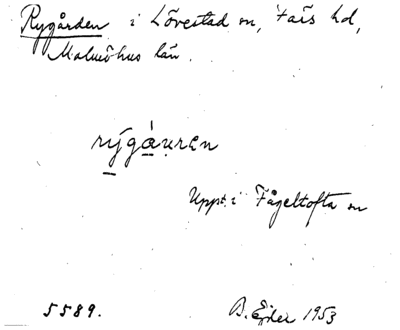 Rygården i Lövestad sn, Färs hd,
Malmöhus län.
rýgáuʀɛn
Uppt. i Fågeltofta sn
5589. B. Ejder 1953